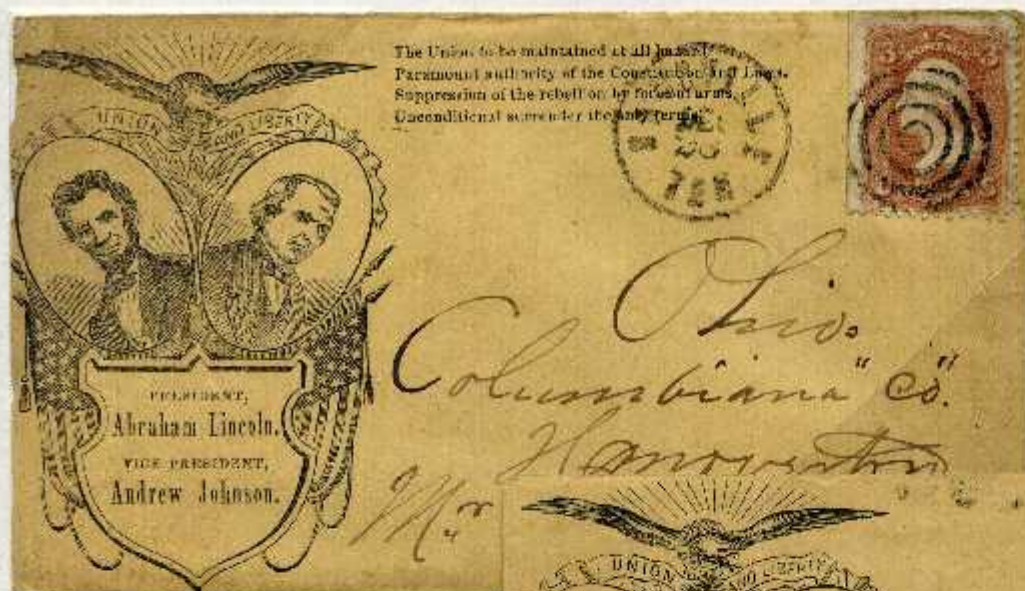 The Union to be maintained at all hazards.
Paramount authority of the Constitution and Laws.
Suppression of the rebellion by force of arms.
Unconditional surrender the only terms.
UNION AND LIBERTY
PRESIDENT,
Abraham Lincoln.
VICE PRESIDENT,
Andrew Johnson.
3 3
Ohio.
Columbiana "Co".
Hanoverton
Mr
UNION AND LIBERTY